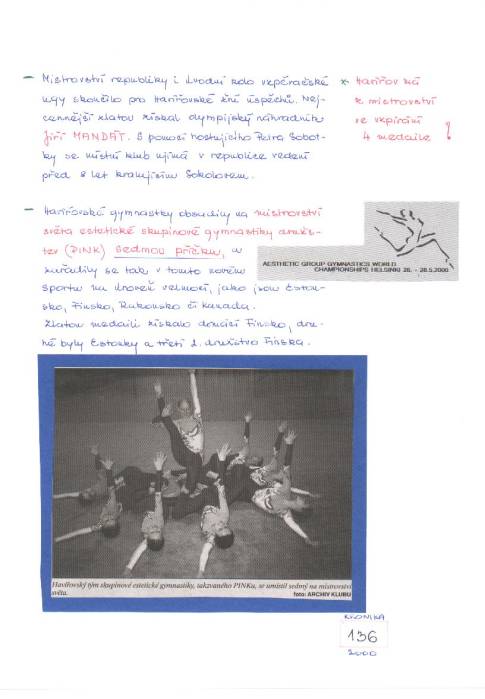 - Mistrovství republiky i úvodní kolo vzpěračské
ligy skončilo pro Havířovské žní úspěchů. Nej-
cennější zlatou získal olympijský náhradník
Jiří MANDÁT. S pomocí hostujícího Petra Sobot-
ky se místní klub ujímá v republice vedení
před 8 let kralujícím Sokolovem.
* Havířov má
z mistrovství
ve vzpírání
4 medaile !
- Havířovské gymnastky obsadily na mistrovství
světa estetické skupinové gymnastiky družs-
tev (PINK) sedmou příčku, a
zařadily se tak v tomto novém
sportu na úroveň velmocí, jako jsou Eston-
sko, Finsko, Rakousko či Kanada.
Zlatou medaili získalo domácí Finsko, dru-
hé byly Estonky a třetí 2. družstvo Finska.
AESTHETIC GROUP GYMNASTICS WORLD
CHAMPIONSHIPS HELSINKI 26. - 28.5.2000
Havířovský tým skupinové estetické gymnastiky, takzvaného PINKu, se umístil sedmý na mistrovství
světa.
foto: ARCHIV KLUBU
KRONIKA
136
2000